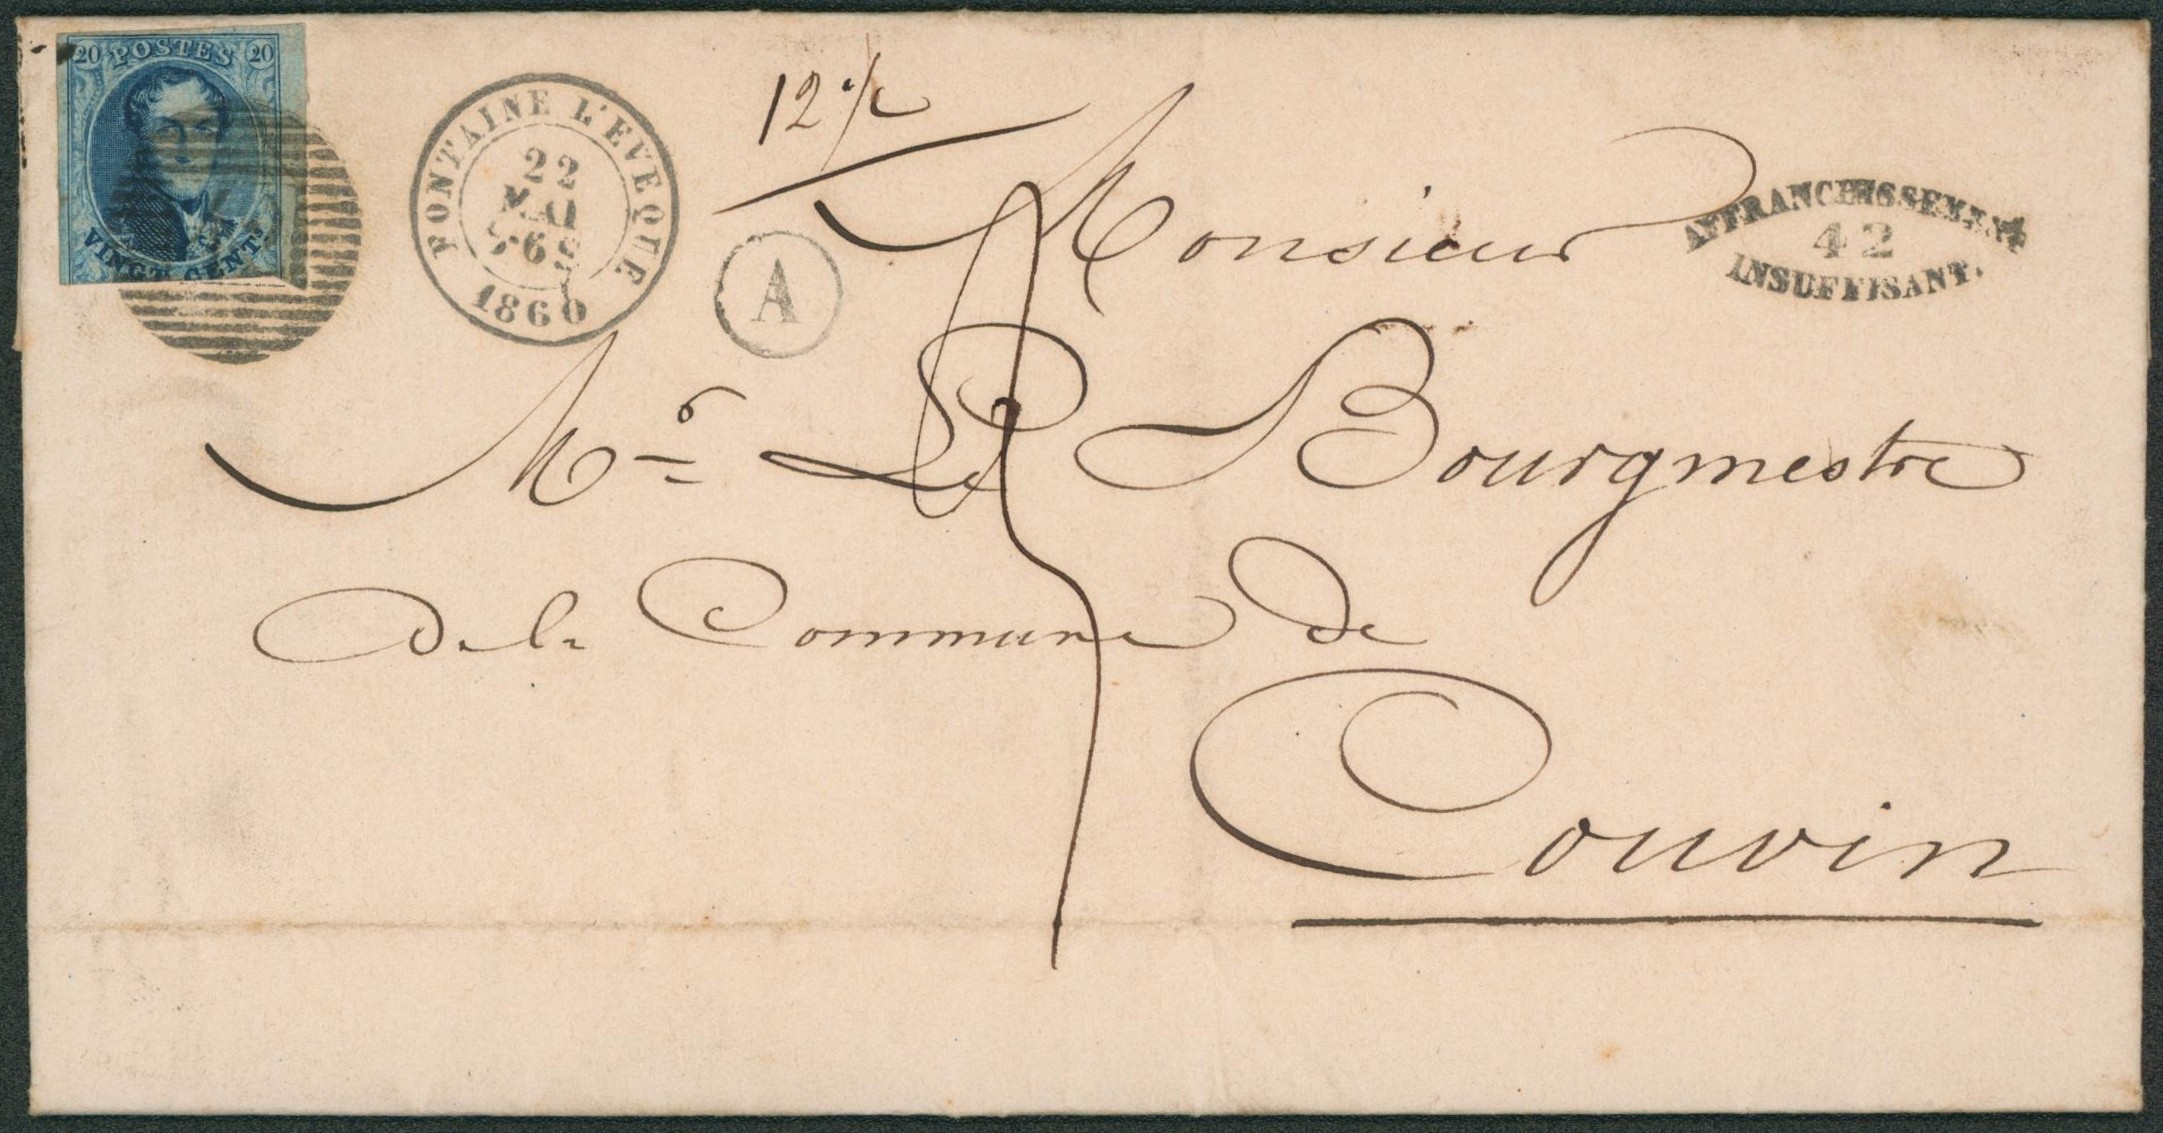 20 POSTES 20
VINGT CENTS
FONTAINE L'EVEQUE
22
MAI
1860
A
AFFRANCHISSEMENT
42
INSUFFISANT.
Monsieur
Mr Le Bourgmestre
de la Commune de
Couvin